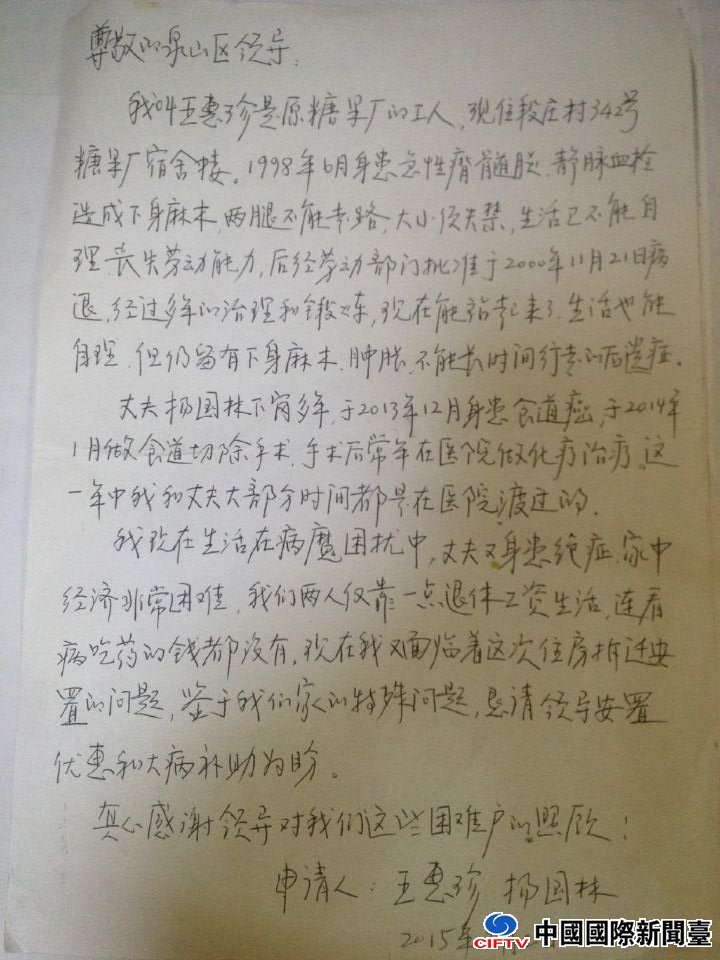 尊敬的泉山区领导:
我叫王惠珍是原糖果厂的工人,现住段庄村342号
糖果厂宿舍楼。1998年6月身患急性脊髓炎、静脉血栓
造成下身麻木,两腿不能走路,大小便失禁,生活已不能自
理,丧失劳动能力,后经劳动部门批准于2000年11月21日病
退,经过多年的治理和锻炼,现在能站起来了,生活也能
自理,但仍留有下身麻木、肿胀、不能长时间行走的后遗症。
丈夫杨国林下岗多年,于2013年12月身患食道癌,于2014年
1月做食道切除手术,手术后常年在医院做化疗治疗。这
一年中我和丈夫大部分时间都是在医院渡过的。
我现在生活在病魔困扰中,丈夫又身患绝症,家中
经济非常困难,我们两人仅靠一点退休工资生活,连看
病吃药的钱都没有,现在我又面临着这次住房拆迁安
置的问题,鉴于我们家的特殊问题,恳请领导安置
优惠和大病补助为盼。
真心感谢领导对我们这些困难户的照顾!
申请人:王惠珍 杨国林
2015年
CIFTV 中國國際新聞臺